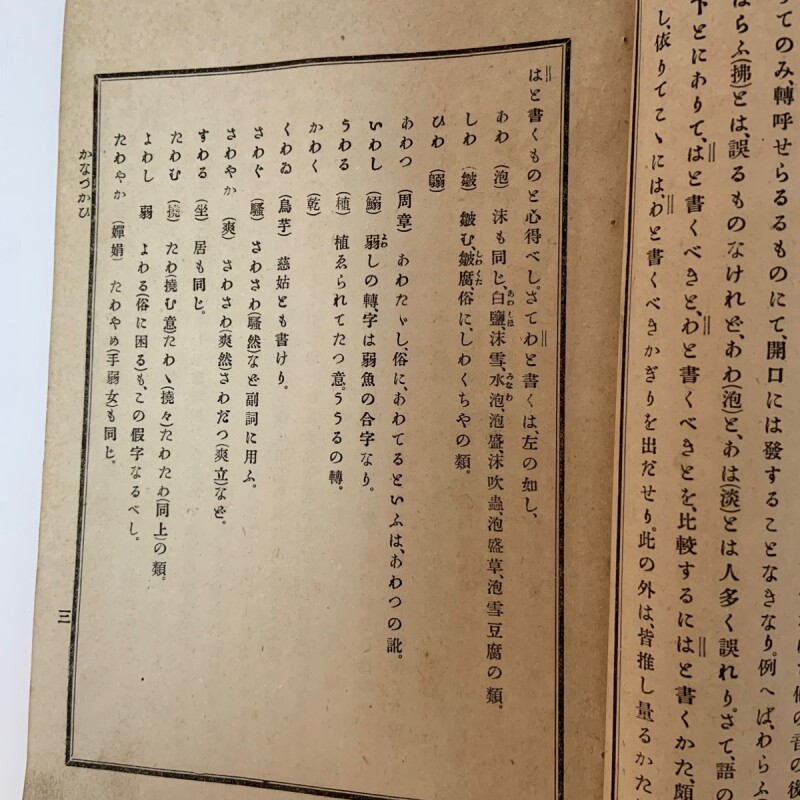 てのみ、轉呼せらるるものにて、開口には發することなきなり。例へば、わらふ
はらふ(拂)とは、誤るものなけれど、あわ(泡)と、あは(淡)とは人多く誤れり。さて、語の
下とにわりて、はと書くべきと、わと書くべきとを、比較するにはと書くかた、頗
し、依りてこゝには、わと書くべきかぎりを出だせり。此の外は、皆推し量るかた
はと書くものと心得べし。さてわと書くは、左の如し、
あわ (泡) 沫も同じ、白鹽沫雪、水泡、泡盛、沫吹蟲、泡盛草、泡雪豆腐の類。
しわ (皺) 皺む、皺腐、俗に、しわくちやの類。
ひわ (鶸)
あわつ (周章) あわたゞし、俗に、あわてるといふは、あわつの訛。
いわし (鰯) 弱しの轉、字は弱魚の合字なり。
うわる (植) 植ゑられてたつ意。ううるの轉。
かわく (乾)
くわゐ (烏芋) 慈姑とも書けり。
さわぐ (騷) さわさわ(騷然)など副詞に用ふ。
さわやか (爽) さわさわ(爽然)さわだつ(爽立)など。
すわる (坐) 居も同じ。
たわむ (撓) たわ(撓む意)たわゝ(撓々)たわたわ(同上)の類。
よわし 弱 よわる(俗に困る)も、この假字なるべし。
たわやか (嬋娟) たわやめ(手弱女)も同じ。
かなづかひ
三